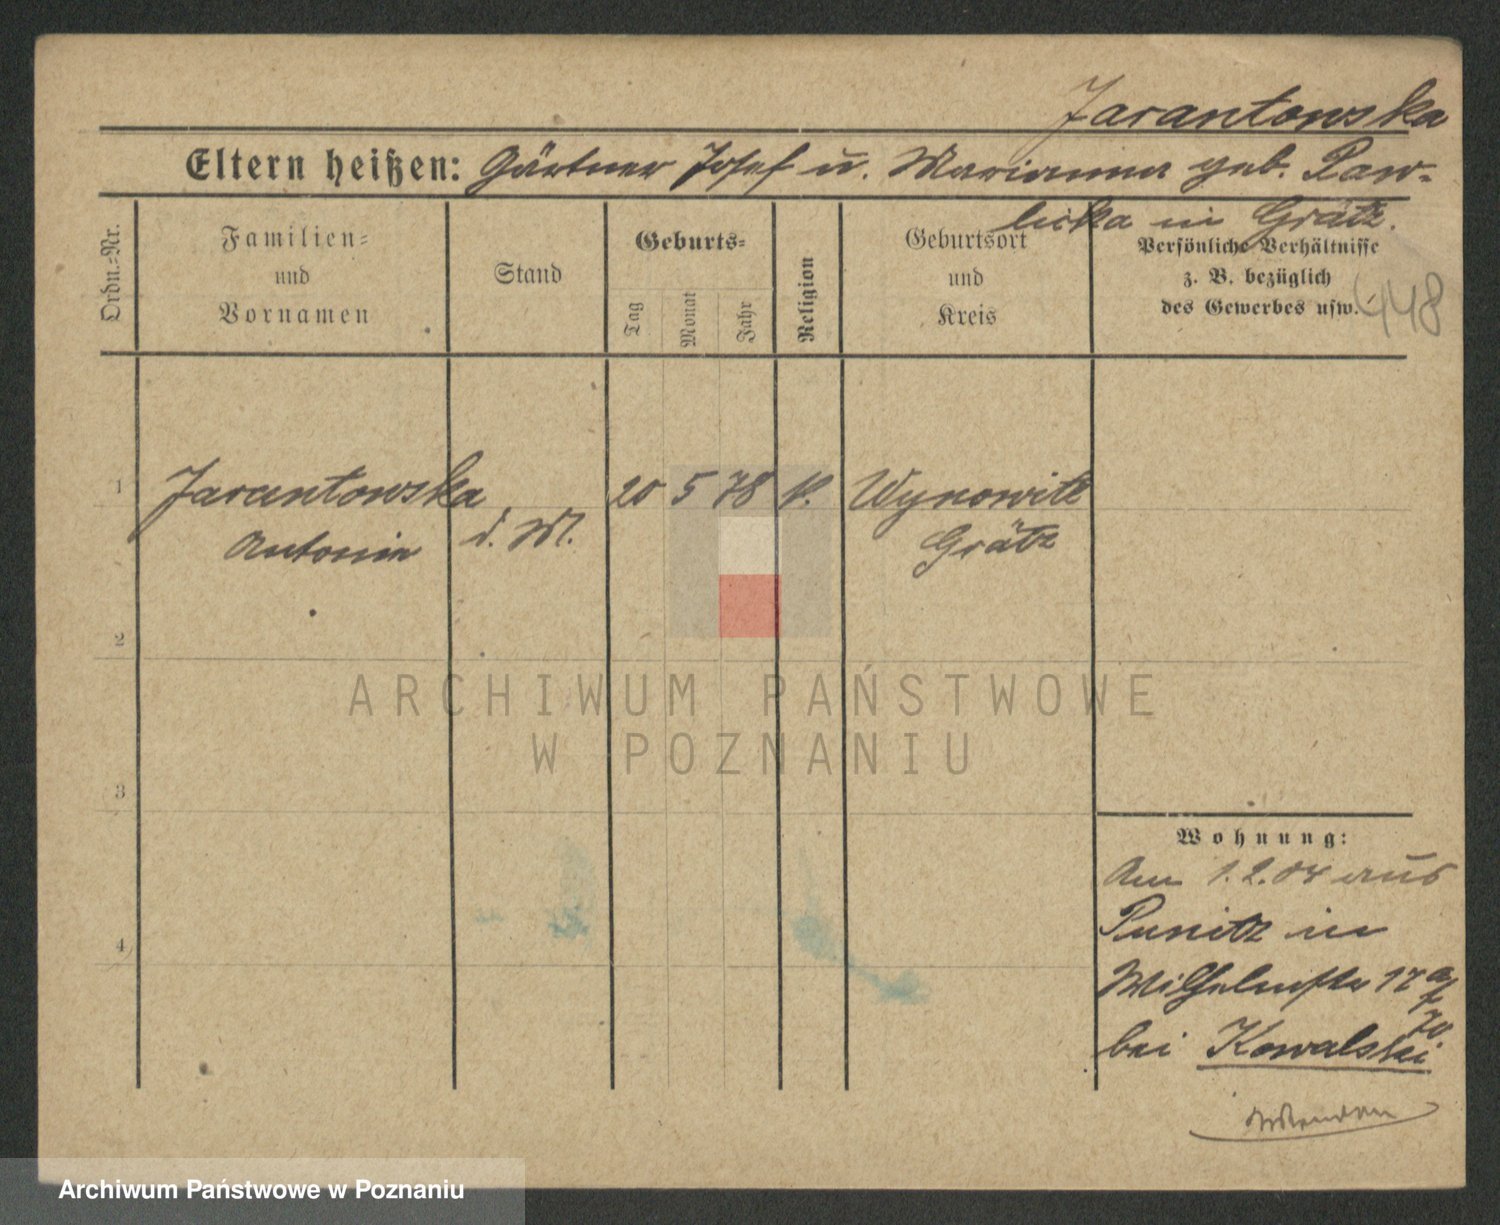 Jarantowska
Eltern heißen: Gärtner Josef u. Marianna geb. Paw-
licka in Grätz.
Ordn.-Nr.
Familien-
und
Vornamen
Stand
Geburts-
Tag
Monat
Jahr
Religion
Geburtsort
und
Kreis
Persönliche Verhältnisse
z. B. bezüglich
des Gewerbes usw.
448
1
Jarantowska
Antonie
d. M.
20 5 78 k.
Wynowitz
Grätz
2
ARCHIWUM PAŃSTWOWE
W POZNANIU
3
4
Wohnung:
Am 1.2.04 aus
Punitz in
Wilhelmstr 17
bei Kowalski
Archiwum Państwowe w Poznaniu